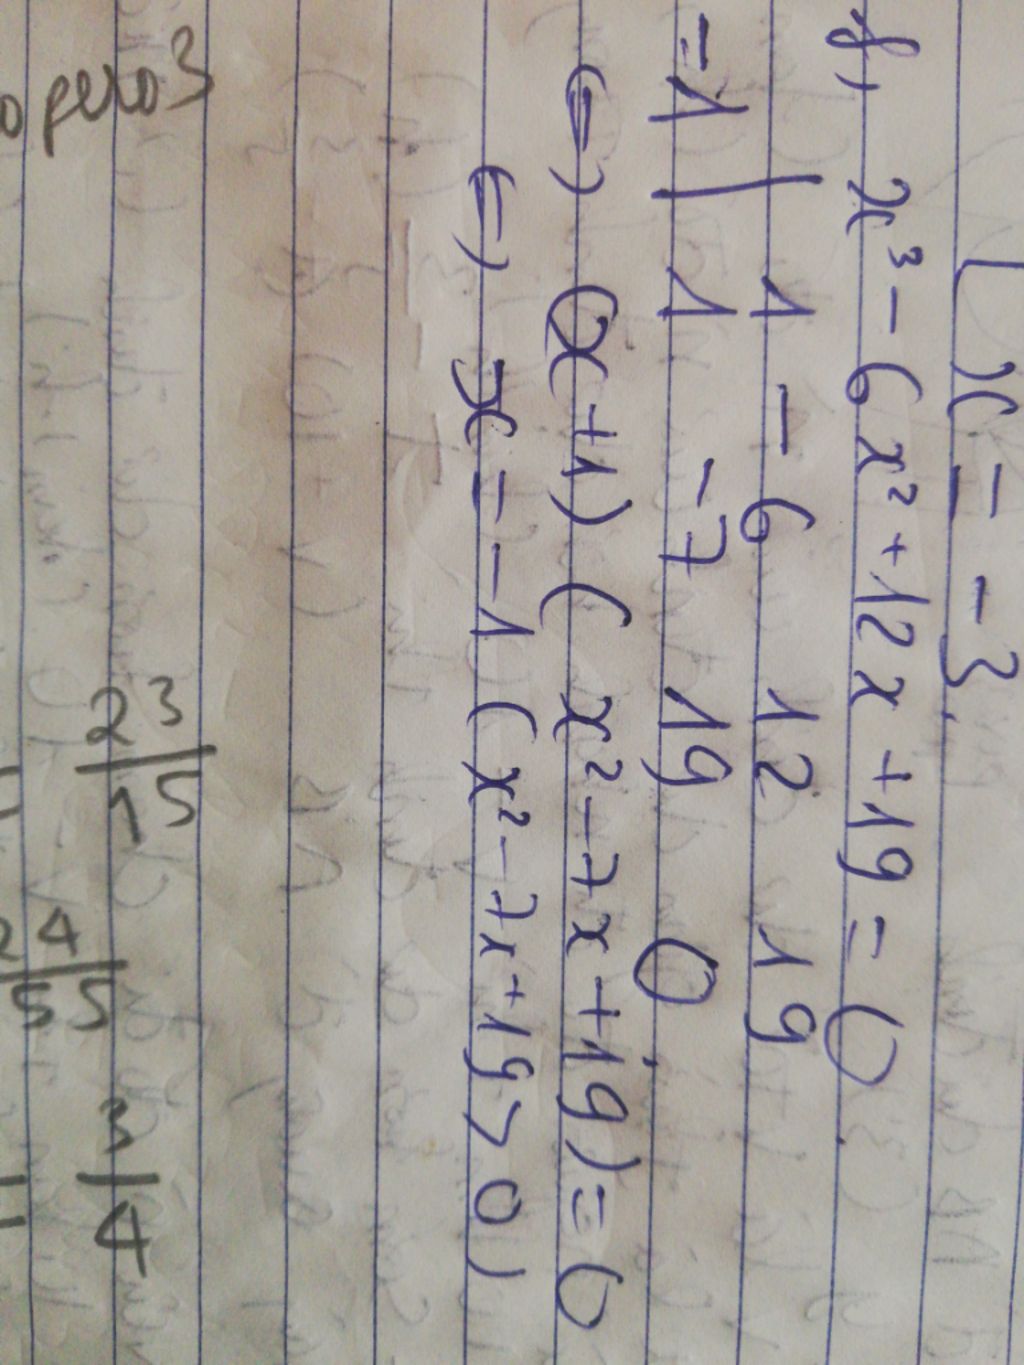 x = -3
f, x³ - 6x² + 12x + 19 = 0
1 -6 12 19
-1 | 1 -7 19 0
⇔ (x + 1) ( x² - 7x + 19) = 0
⇔ x = -1 (x² - 7x + 19 > 0)
2 3
15
24
55
3
4